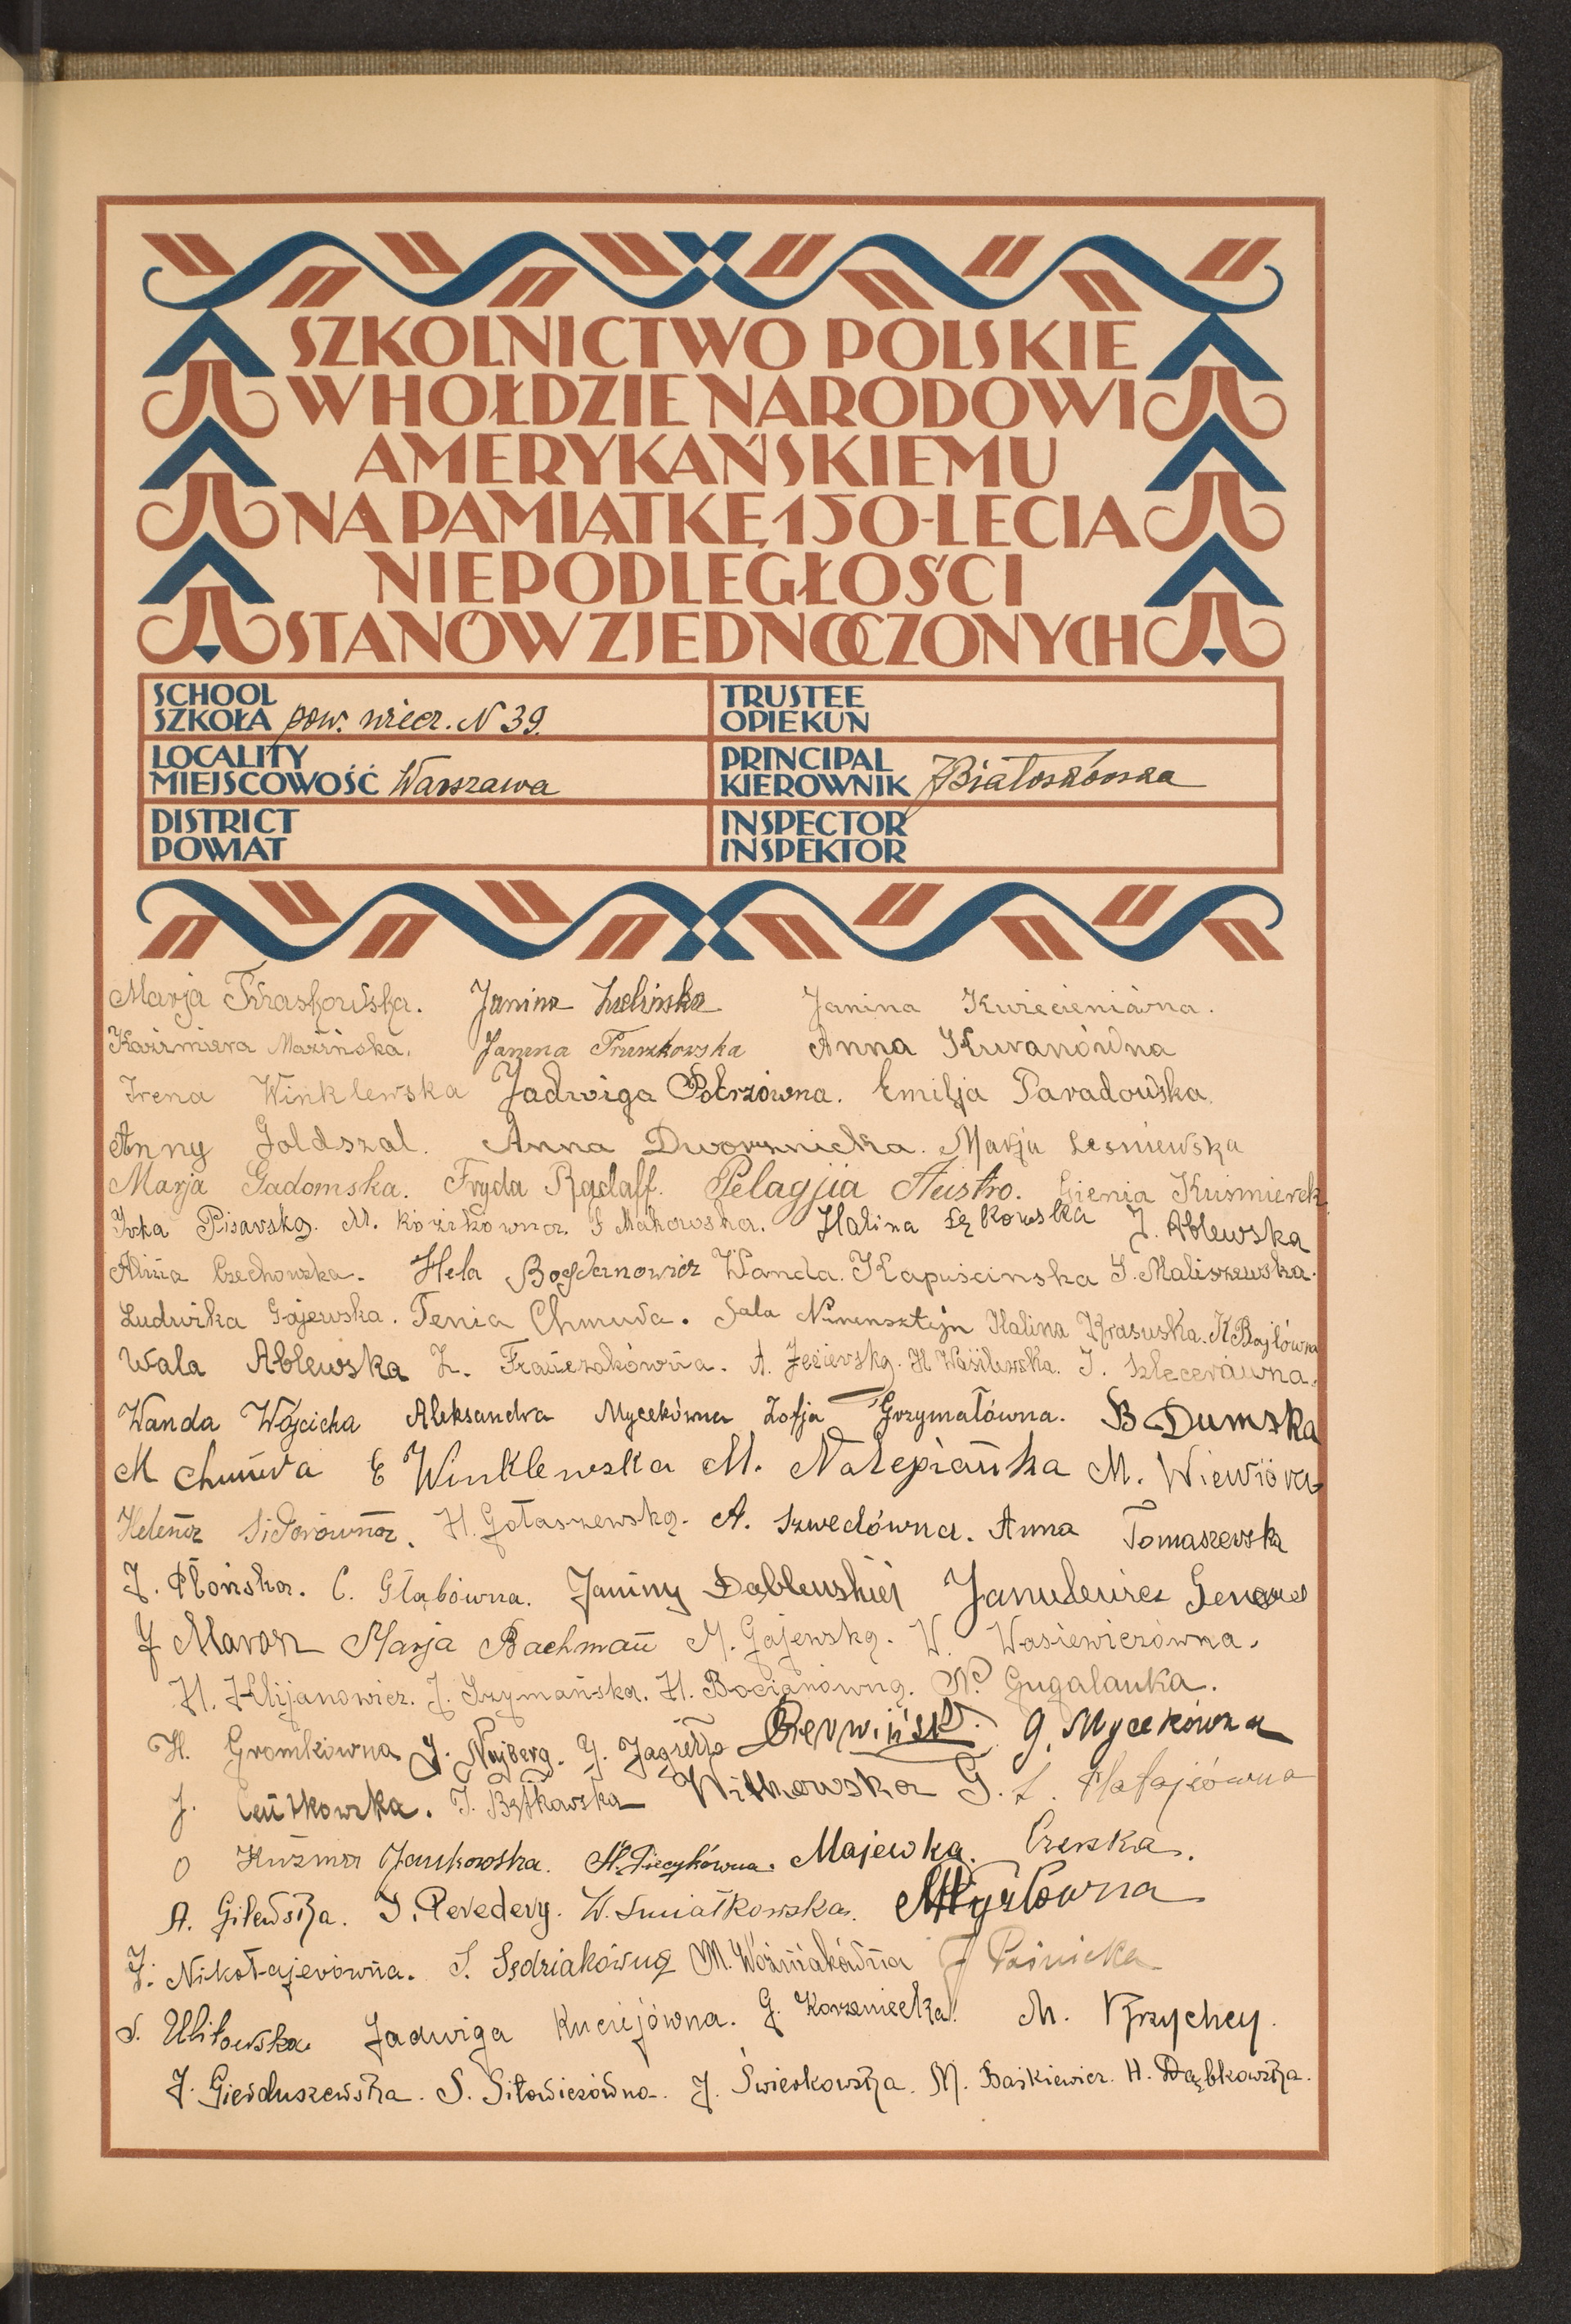 SZKOLNICTWO POLSKIE
W HOŁDZIE NARODOWI
AMERYKAŃSKIEMU
NA PAMIĄTKĘ 150-LECIA
NIEPODLEGŁOŚCI
STANÓW ZJEDNOCZONYCH
SCHOOL
SZKOŁA pow. wiecz. N 39.
TRUSTEE
OPIEKUN
LOCALITY
MIEJSCOWOŚĆ Warszawa
PRINCIPAL
KIEROWNIK JBiałoskórska
DISTRICT
POWIAT
INSPECTOR
INSPEKTOR
Marja Kraskowska. Janina Janina Kwiecieniówna.
Kazimiera Mazińska. Janina Fruzkowska Anna Kuranówna
Irena Winklewska Jadwiga Piotrzówna. Emilja Paradowska.
Anny Goldszal. Anna Dwornicka. Marja Leśniewska
Marja Gadomska. Fryda Rądaff. Pelagjia Austro. Gienia Kuśmierek
Pisarska. M. Kozikówna. S Makowska. Halina Łękowska J. Ablewska
Alina Czechowska. Hela Bogdanowicz Wanda. Kapuścinska S. Maliszewska.
Ludwika Gajewska. Fenia Chmura. Sala Nirensztejn Halina Krasuska. K Bajłówna
Wala Ablewska Z. Franczakówna. A. H Wasilewska. J. Szlecerówna.
Wanda Wójcicka Aleksandra Mycekówna Zofja Grzymałówna. B Dumska
M Chmura E Winklewska M. Nalepianka M. Wiewióra
Helena Sidorówna. H. Gołaszewska. A. Szwedówna. Anna Tomaszewska
J. Płońska. C. Głąbówna. Janiny Dąblewskiej Janulewicz Genowe
J Maron Marja Bachman M. Gajewska. W. Wasiewiczówna.
H. Klijanowicz. J. Szymańska. H. Bocianówna. N. Gugalanka.
H. Gromkówna J. Najberg. G. Jagiełło Czerwińsk G. Mycekówna
J. Centkowska. J. Bętkowska Witkowska G. Z. Matajówna
O Kuźma Jankowska. H. Piecykówna. Majewka. Czerska.
A. Gilewska. J. Peredery. W. Smiałkowska. MKyzłówna
J. Nikołajerówna. S. Sędziakówna M. Woźniakówna J Paśnicka
S. Uliłowska. Jadwiga Kuciejówna. G. Korzeniecka. M. Krzychey.
J. Gierduszewska. S. Siłowiczówna. J. Świerkowska. M. Baśkiewicz. H. Dąbkowska.